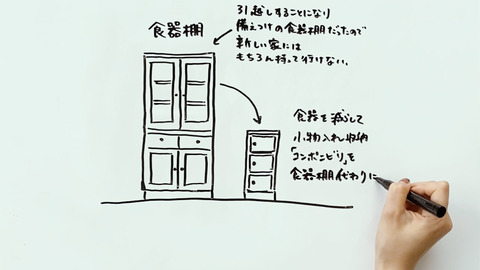 食器棚
引越しすることになり
備えつけの食器棚だったので
新しい家には
もちろん持って行けない。
食器を減らして
小物入れ収納
「コンポンビリ」を
食器棚代わりに